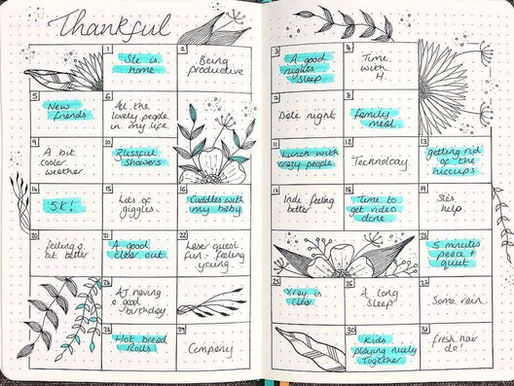 Thankful
1
Ste is
home
2
Being
productive
5
New
friends
6
All the
lovely people
in my life
9
A bit
cooler
weather
10
Blissful
Showers
14
5K!
15
Lots of
giggles
16
Cuddles with
my baby
20
feeling a
bit better
21
A good
clear out
22
Laser quest
fun - feeling
young
24
AJ having
a good
birthday
28
Hot bread
Rolls
29
Company
3
A good
nights
sleep
4
Time
with
H.
7
Date night
8
family
meal
11
Lunch with
crazy people
12
Technology
13
getting rid
of the
hiccups
17
Indi feeling
better
18
Time to
get video
done
19
Ste's
help
23
5 minutes
peace &
quiet
25
Xray is
clear
26
A long
sleep
27
Some rain
30
Kids
playing nicely
together
31
fresh hair
do!